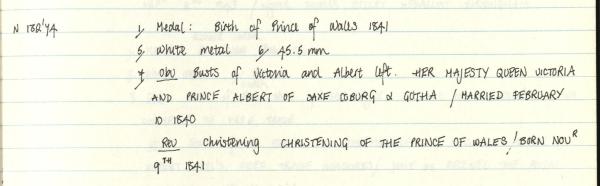 N 182'74 1, Medal: Birth of Prince of Wales 1841
5, White metal 6, 45.5 mm
7, Obv Busts of Victoria and Albert left. HER MAJESTY QUEEN VICTORIA
AND PRINCE ALBERT OF SAXE COBURG & GOTHA / MARRIED FEBRUARY
10 1840
Rev Christening CHRISTENING OF THE PRINCE OF WALES / BORN NOVR
9TH 1841